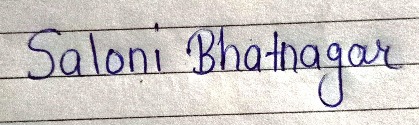 Saloni Bhatnagar